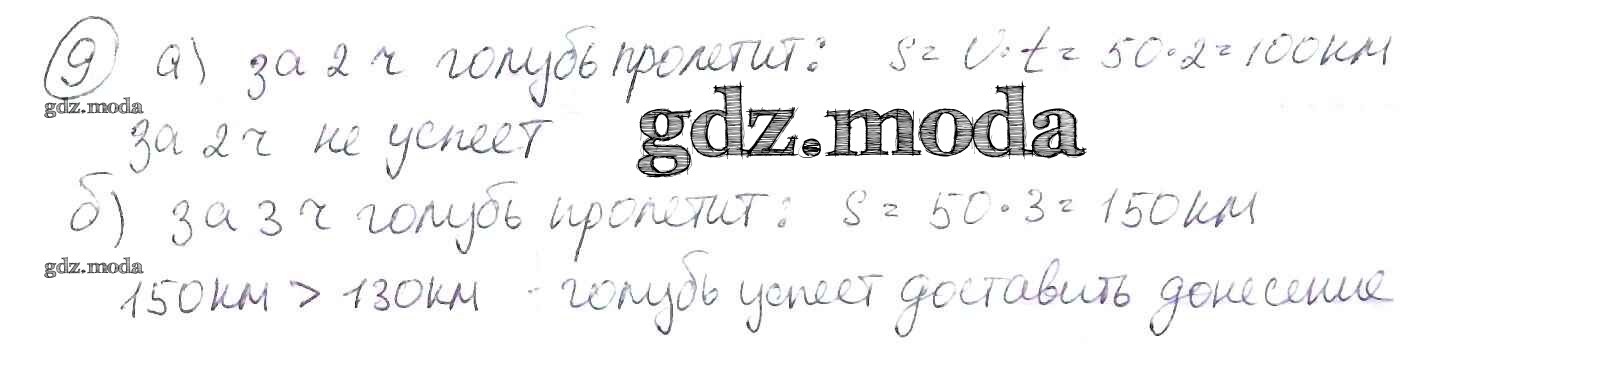 9 а) за 2 ч голубь пролетит: S = V·t = 50·2 = 100 км
gdz.moda
за 2 ч не успеет
gdz.moda
б) за 3 ч голубь пролетит: S = 50·3 = 150 км
gdz.moda
150 км > 130 км - голубь успеет доставить донесение